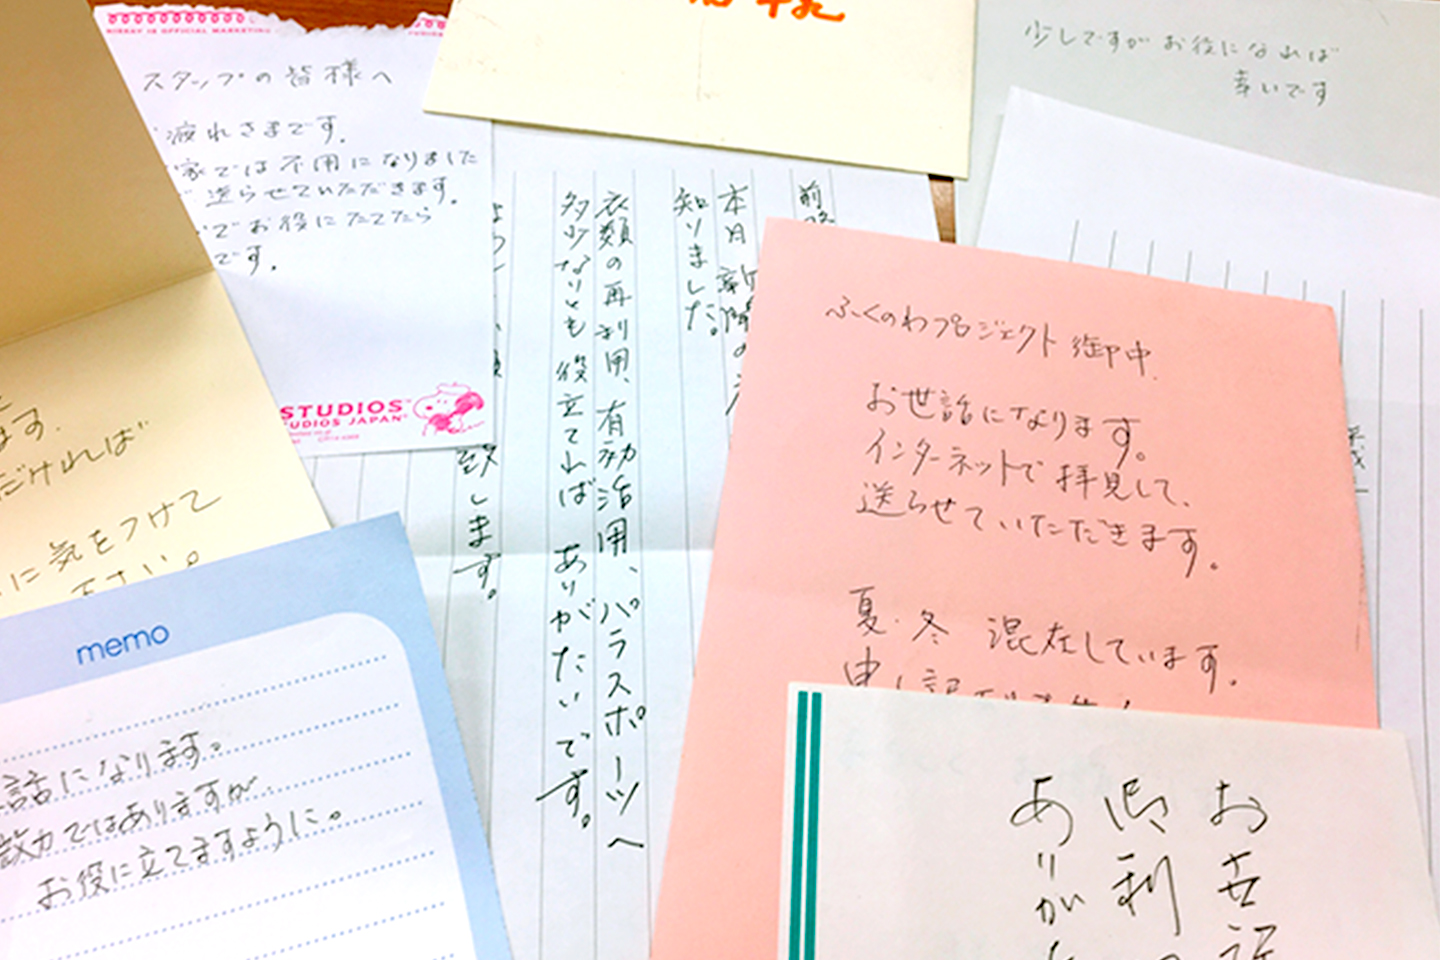 スタッフの皆様へ
疲れさまです。
家では不用になりました
送らせていただきます。
でお役にたてたら
です。
STUDIOS
STUDIOS JAPAN
少しですがお役になれば
幸いです
前略
本月新聞の
知りました。
衣類の再利用、有効活用、パラスポーツへ
多少なりとも役立てれば ありがたいです。
致します。
ふくのわプロジェクト 御中
お世話になります。
インターネットで拝見して、
送らせていただきます。
夏・冬 混在しています。
ます。
だければ
に気をつけて
下さい。
memo
話になります。
微力ではありますが
お役に立てますように。
お世話
利
ありがた